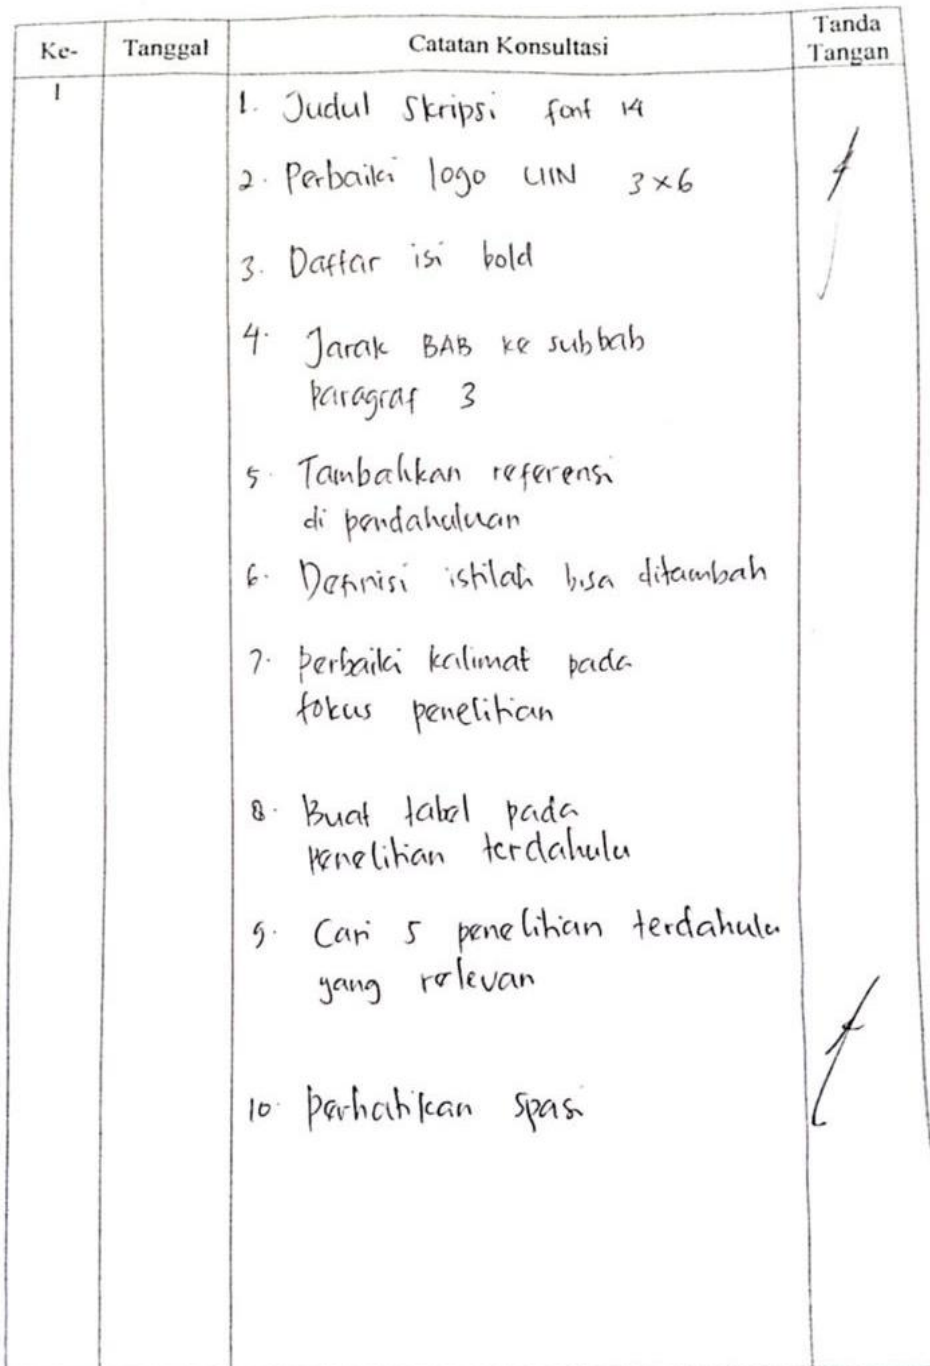 Ke- Tanggal Catatan Konsultasi Tanda Tangan
1
1. Judul Skripsi font 14
2. Perbaiki logo UIN 3x6
3. Daftar isi bold
4. Jarak BAB ke subbab
paragraf 3
5. Tambahkan referensi
di pendahuluan
6. Definisi istilah bisa ditambah
7. Perbaiki kalimat pada
fokus penelitian
8. Buat tabel pada
Penelitian terdahulu
9. Cari 5 penelitian terdahulu
yang relevan
10. Perhatikan spasi